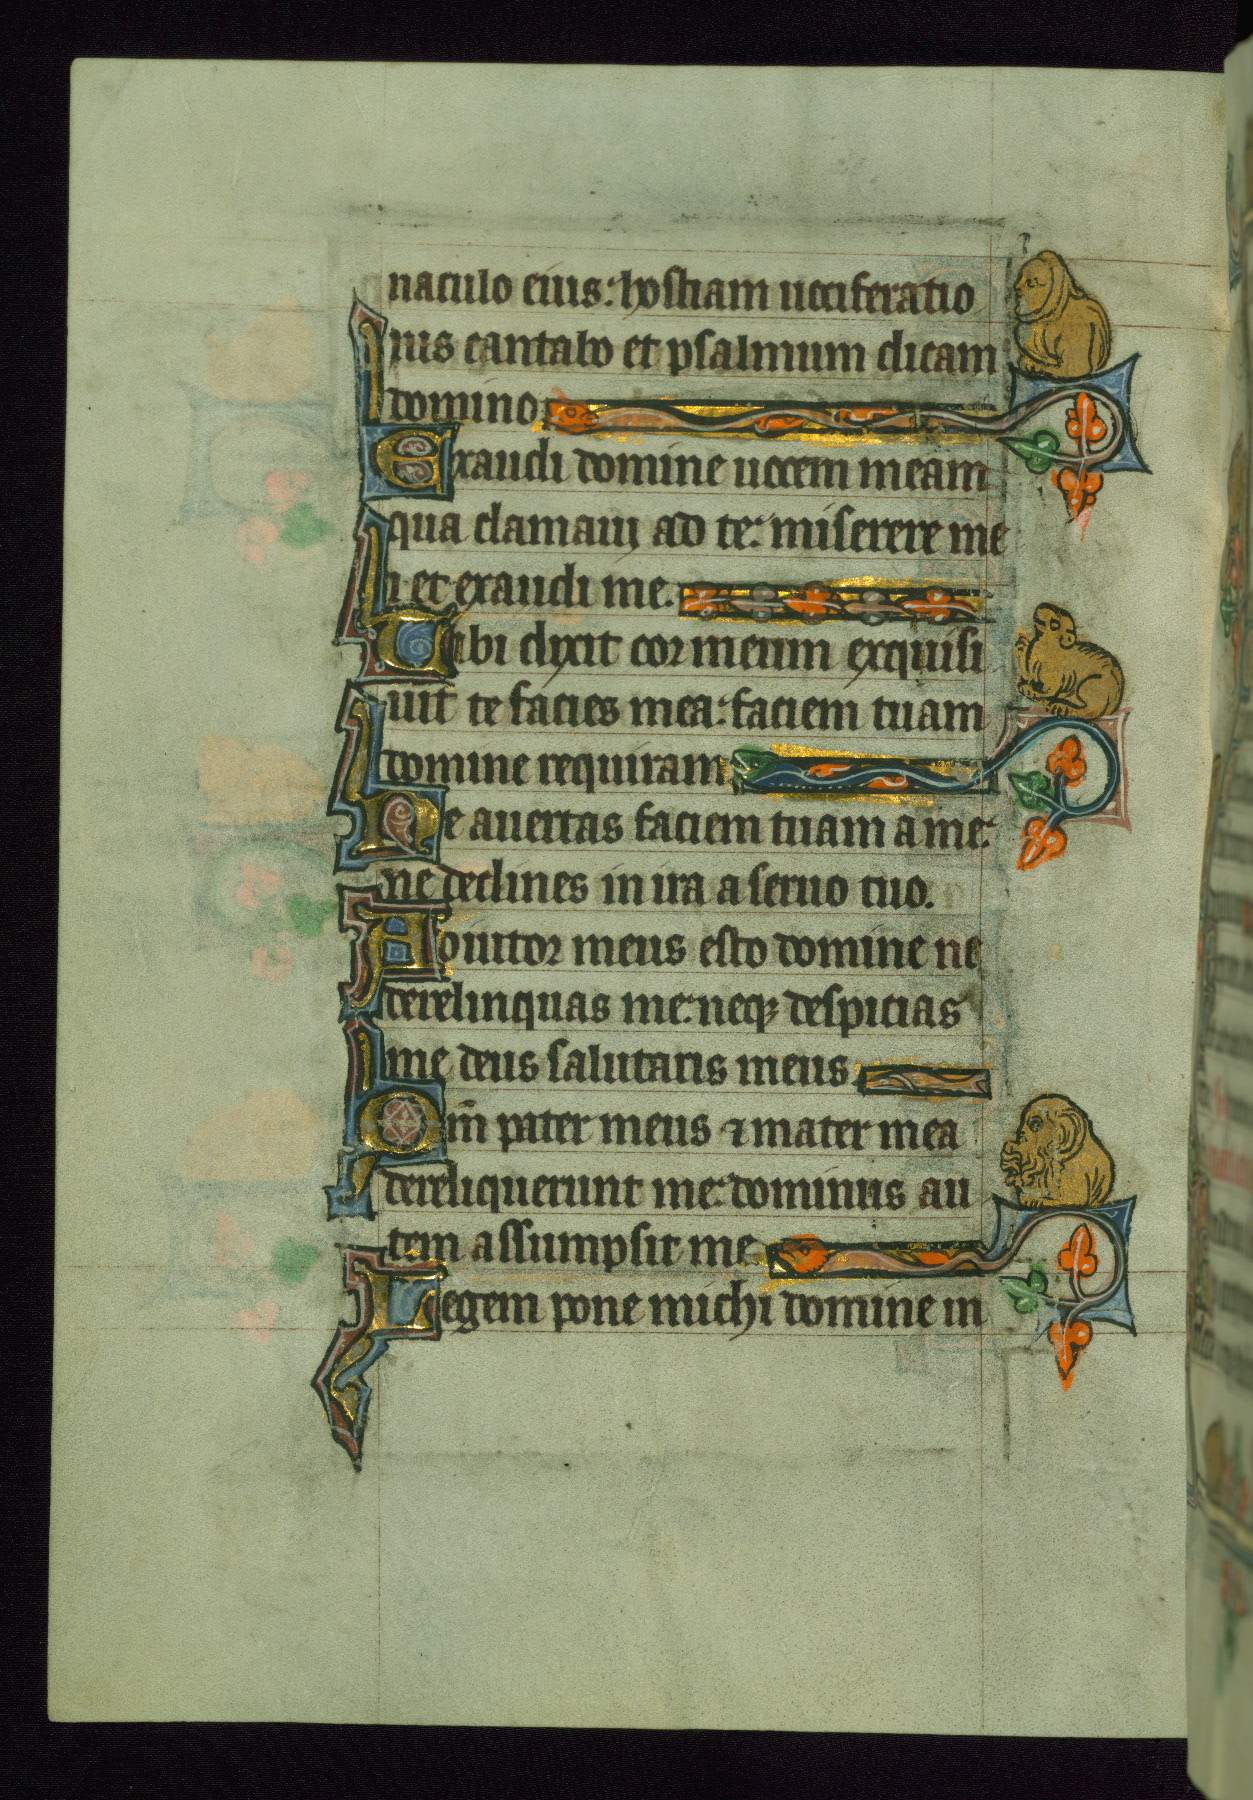 naculo eius: hostiam uociferatio
nis cantabo et psalmum dicam
domino
Exaudi domine uocem meam
qua clamaui ad te: miserere me
i et exaudi me.
Tibi dixit cor meum exquisi
uit te facies mea: faciem tuam
domine requiram
Ne auertas faciem tuam a me:
ne declines in ira a seruo tuo.
Adiutor meus esto domine ne
derelinquas me: neqꝫ despicias
me deus salutaris meus
Qm̄ pater meus ⁊ mater mea
dereliquerunt me: dominus au
tem assumpsit me
Legem pone michi domine in